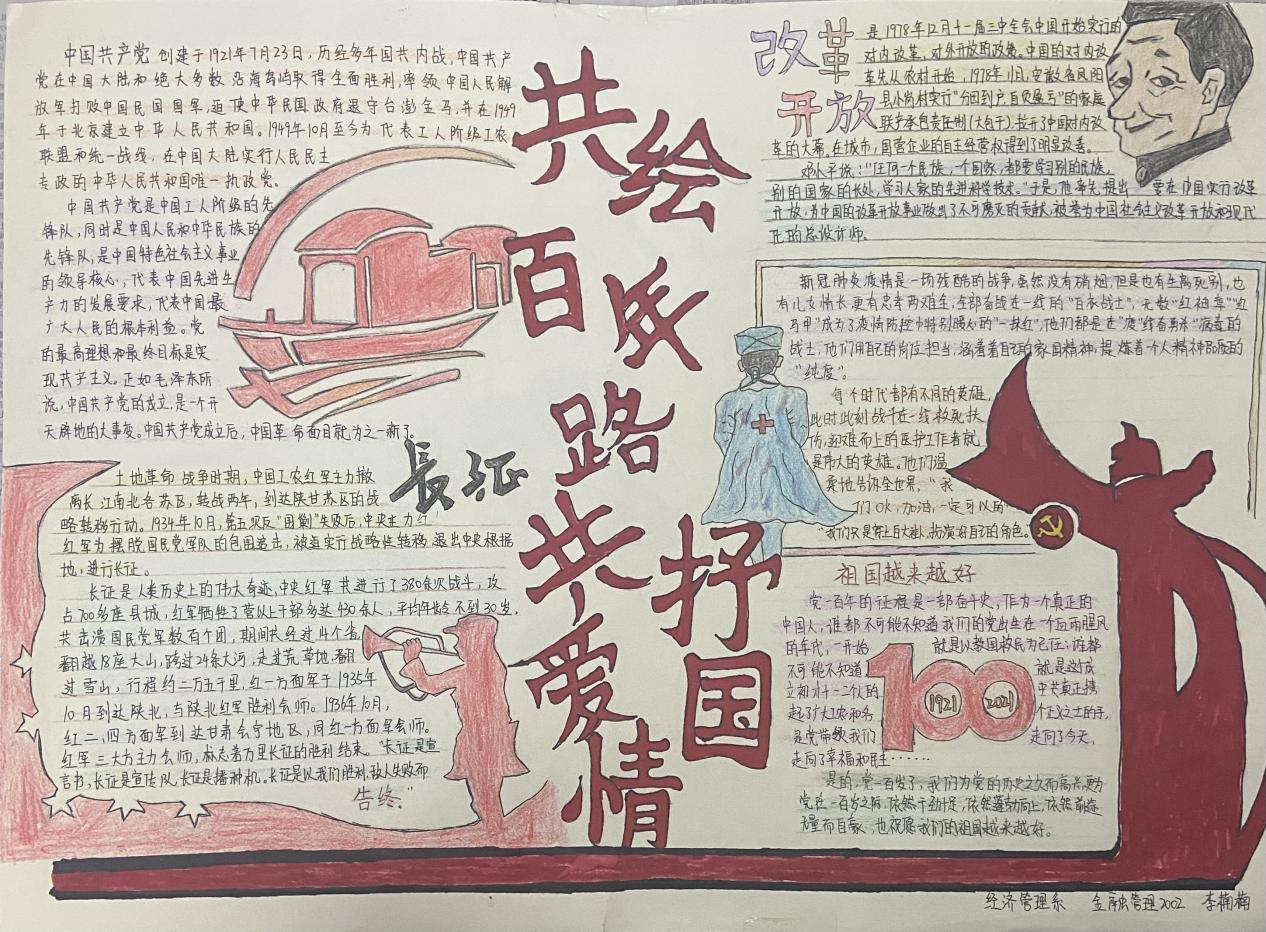 共绘百年路
共抒爱国情
中国共产党 创建于1921年7月23日，历经多年国共内战，中国共产
党在中国大陆和绝大多数沿海岛屿取得全面胜利，率领中国人民解
放军打败中国民国国军，迫使中华民国政府退守台澎金马，并在1949
年于北京建立中华人民共和国。1949年10月至今为 代表工人阶级工农
联盟和统一战线，在中国大陆实行人民民主
专政的中华人民共和国唯一执政党。
中国共产党是中国工人阶级的先
锋队，同时是中国人民和中华民族的
先锋队，是中国特色社会主义事业
的领导核心，代表中国先进生
产力的发展要求，代表中国最
广大人民的根本利益。党
的最高理想和最终目标是实
现共产主义。正如毛泽东所
说，中国共产党的成立，是一个开
天辟地的大事变。中国共产党成立后，中国革命面目就为之一新了。
長征
土地革命战争时期，中国工农红军主力撤
离长江南北各苏区，转战两年，到达陕甘苏区的战
略转移行动。1934年10月，第五次反“围剿”失败后，中央主力红
红军为摆脱国民党军队的包围追击，被迫实行战略性转移，退出中央根据
地，进行长征。
长征是人类历史上的伟大奇迹，中央红军共进行了380余次战斗，攻
占700多座县城，红军牺牲了营以上干部多达430余人，平均年龄不到30岁，
共击溃国民党军数百个团，期间共经过14个省，
翻越18座大山，跨过24条大河，走过荒草地，翻
过雪山，行程约二万五千里，红一方面军于1935年
10月到达陕北，与陕北红军胜利会师。1936年10月，
红二、四方面军到达甘肃会宁地区，同红一方面军会师。
红军三大方主力会师，标志着万里长征的胜利结束。“长征是宣
言书，长征是宣传队，长征是播种机。长征是以我们胜利，敌人失败而
告终。”
改革开放
是1978年12月十一届三中全会中国开始实行的
对内改革，对外开放的政策。中国的对内改
革先从农村开始，1978年11月，安徽省凤阳
县小岗村实行“分田到户，自负盈亏”的家庭
联产承包责任制(大包干)，拉开了中国对内改
革的大幕。在城市，国营企业的自主经营权得到了明显改善。
邓小平说：“任何一个民族，一个国家，都要学习别的民族，
别的国家的长处，学习人家的先进科学技术。”于是，他率先提出 要在中国实行改革
开放，为中国的改革开放事业做出了不可磨灭的贡献，被誉为中国社会主义改革开放和现代
化的总设计师。
新冠肺炎疫情是一场残酷的战争，虽然没有硝烟，但是也有生离死别，也
有儿女情长，更有忠孝两难全，全部奋战在一线的“白衣战士”，无数“红袖章”“红
马甲”成为了疫情防控中特别暖心的“一抹红”，他们都是在“疫”线奋勇杀“病毒的
战士，他们用自己的岗位担当，涵养着自己的家国精神，提炼着个人精神品质的
“纯度”。
每个时代都有不同的英雄，
此时此刻战斗在一线救死扶
伤，迎难而上的医护工作者就
是伟人的英雄。他们温
柔地告诉全世界，“我
们OK，加油，一定可以的”
“我们只是穿上白大褂，扮演好自己的角色。
祖国越来越好
党一百年的征程是一部奋斗史，作为一个真正的
中国人，谁都不可能不知道我们的党出生在一个血雨腥风
的年代，一开始 就是以救国救民为己任；谁都
不可能不知道 就是这成
立初才十二个伙的 中共真正携
起了广大工农和各 个正义之士的手，
是党带领我们 走向了今天，
走向了幸福和民主……
100
1921
2021
是的，党一百岁了，我们为党的历史之久而高兴，更为
党在一百岁之际，依然干劲十足，依然蓬勃向上，依然前途
无量而自豪，也祝愿我们的祖国越来越好。
经济管理系 金融管理2002 李楠楠